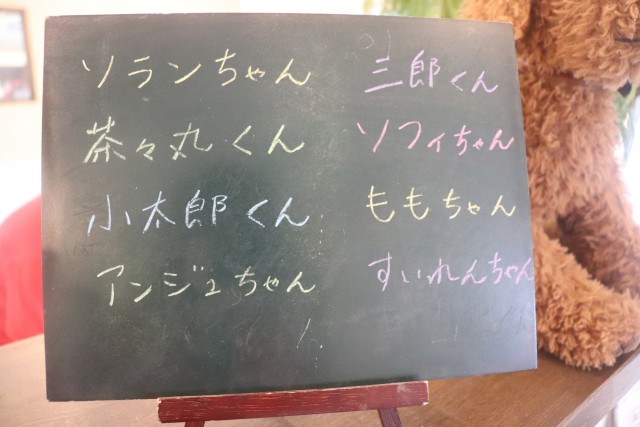 ソランちゃん
茶々丸くん
小太郎くん
アンジュちゃん
三郎くん
ソフィちゃん
ももちゃん
すいれんちゃん